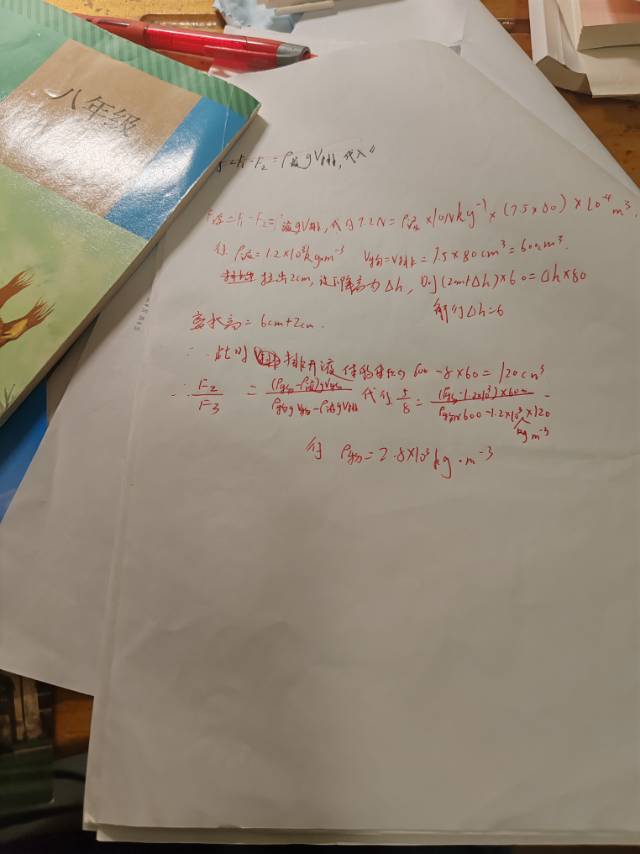 八年级
=F₁-F₂=ρ液gV排,代入
F浮=F₁-F₂=ρ液gV排,代得7.2N=ρ液×10Nkg⁻¹×(7.5×80)×10⁻⁶m³
得 ρ液=1.2×10³kg·m⁻³ V物=V排=7.5×80cm³=600cm³.
提出2cm,设下降高为Δh,则(2cm+Δh)×60=Δh×80
解得Δh=6
离水高=6cm+2cm.
∴此时 排开液体的体积为600-8×60=120cm³
∴F₂/F₃=(ρ物-ρ液)gV物/ρ物gV物-ρ液gV排 代得5/8=(ρ物-1.2×10³)×600/ρ物×600-1.2×10³×120
kg m⁻³
得 ρ物=2.8×10³kg·m⁻³